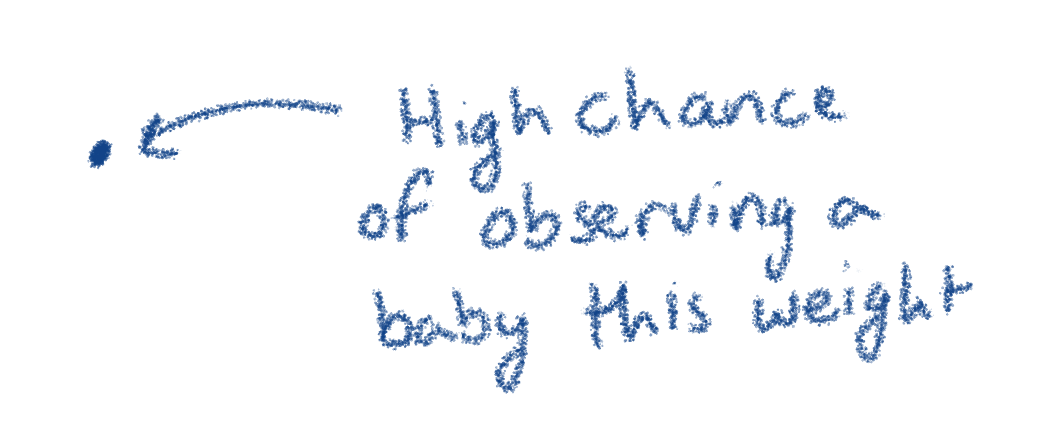 High chance
of observing a
baby this weight